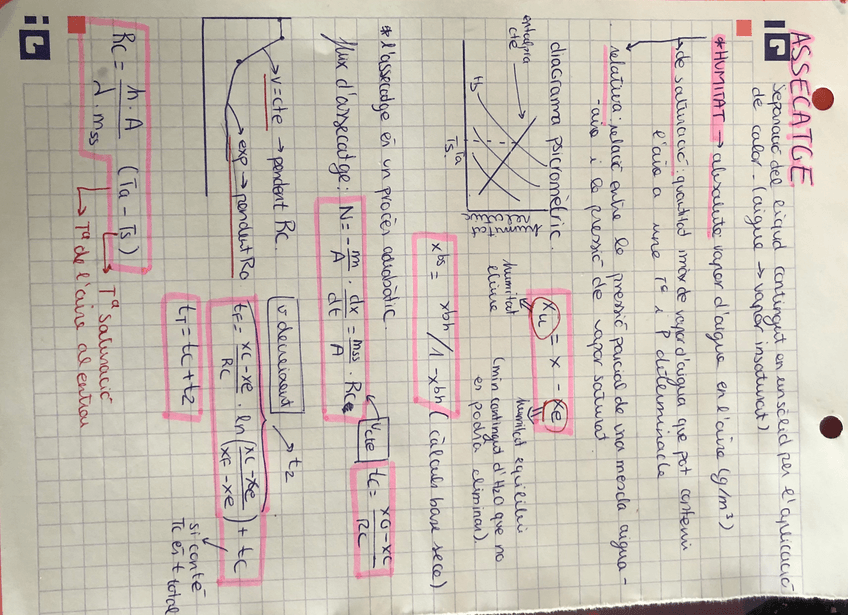 ASSECATGE
Separació del líquid contingut en un sòlid per l'aplicació
de calor. (aigua → vapor insaturat)
*HUMITAT → absoluta: vapor d'aigua en l'aire (g/m³)
de saturació: quantitat màx de vapor d'aigua que pot contenir
l'aire a una Tª i P determinada
relativa: relació entre la pressió parcial de una mescla aigua-
-aire i la pressió de vapor saturat.
diagrama psicromètric
entalpia
cte
Hs
Ts
Ta
xu = x - xe
humitat
lliure
humitat equilibri
(min contingut d'H2O que no
es podrà eliminar).
xbs = xbh/1-xbh (càlculs base seca)
*l'assecatge és un procés adiabàtic.
flux d'assecatge: N = - m/A · dx/dt = mss/A · Rc
vcte
tc = xo-xc / Rc
v=cte → pendent Rc.
exp → pendent Ro
v decreixent → t2
tF = xc-xe / Rc · ln(xc-xe / xF-xe) + tc
si conté
Tc és t total
tT = tc + t2
Rc = h·A / λ·mss (Ta - Ts)
Tª saturació
Tª de l'aire al entrar